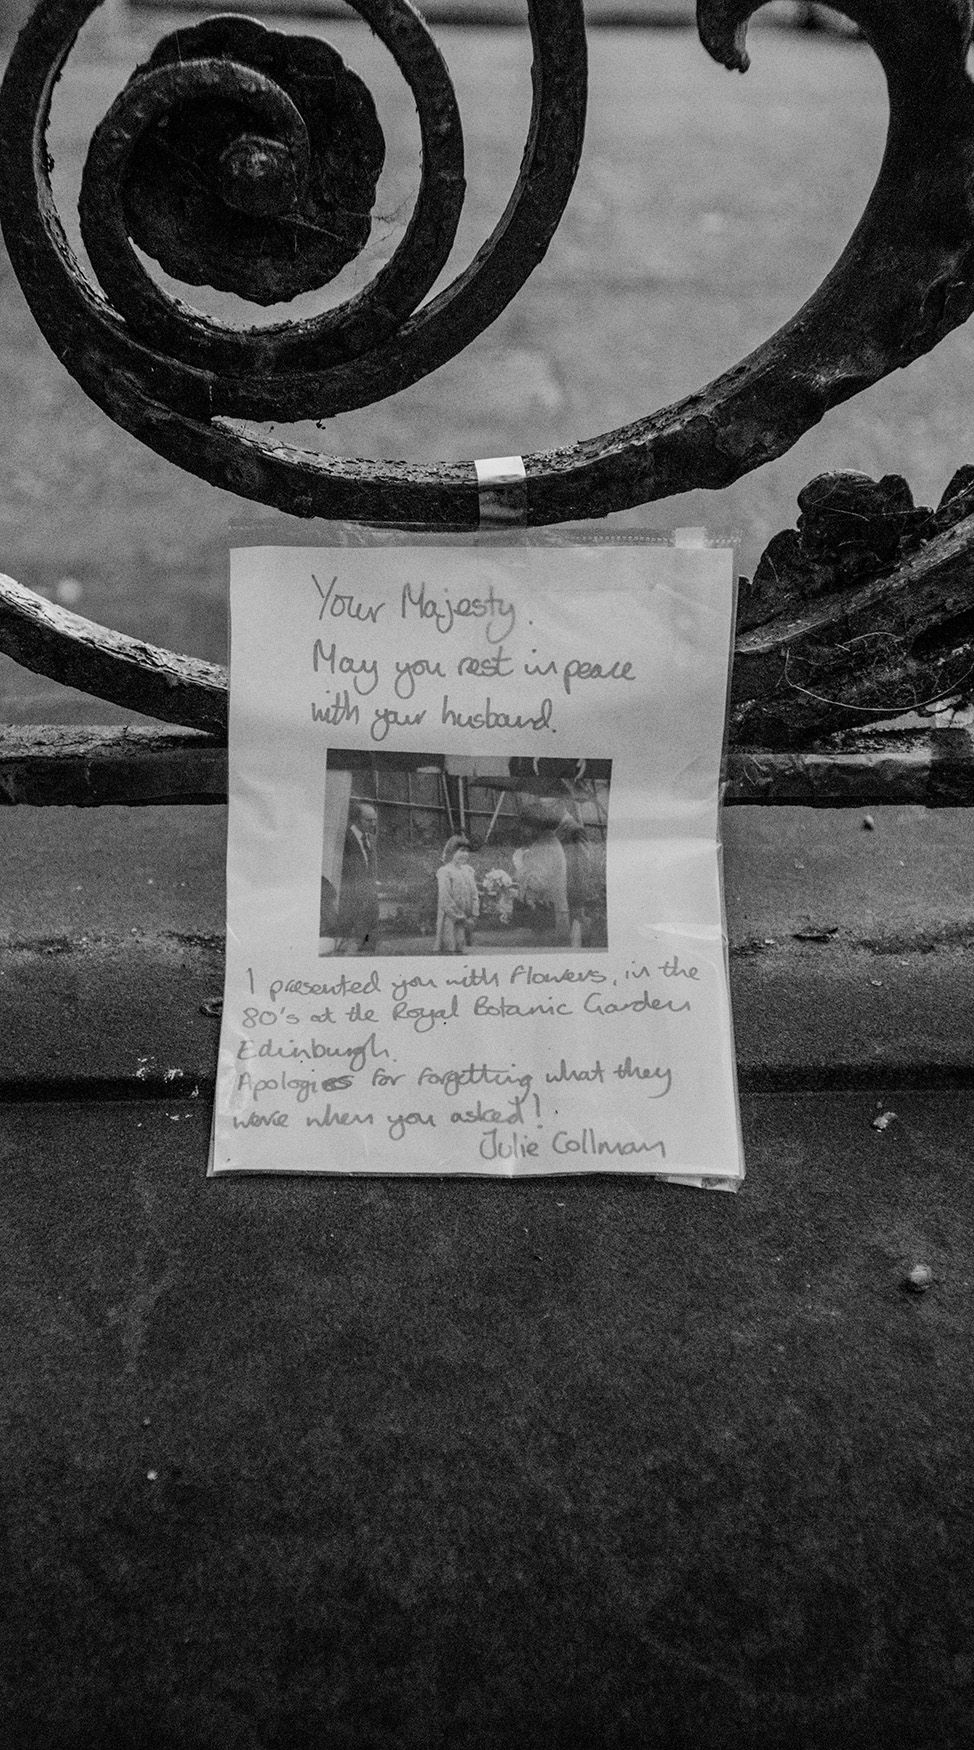 Your Majesty.
May you rest in peace
with your husband.
I presented you with flowers, in the
80's at the Royal Botanic Garden
Edinburgh.
Apologies for forgetting what they
were when you asked!
Julie Collman